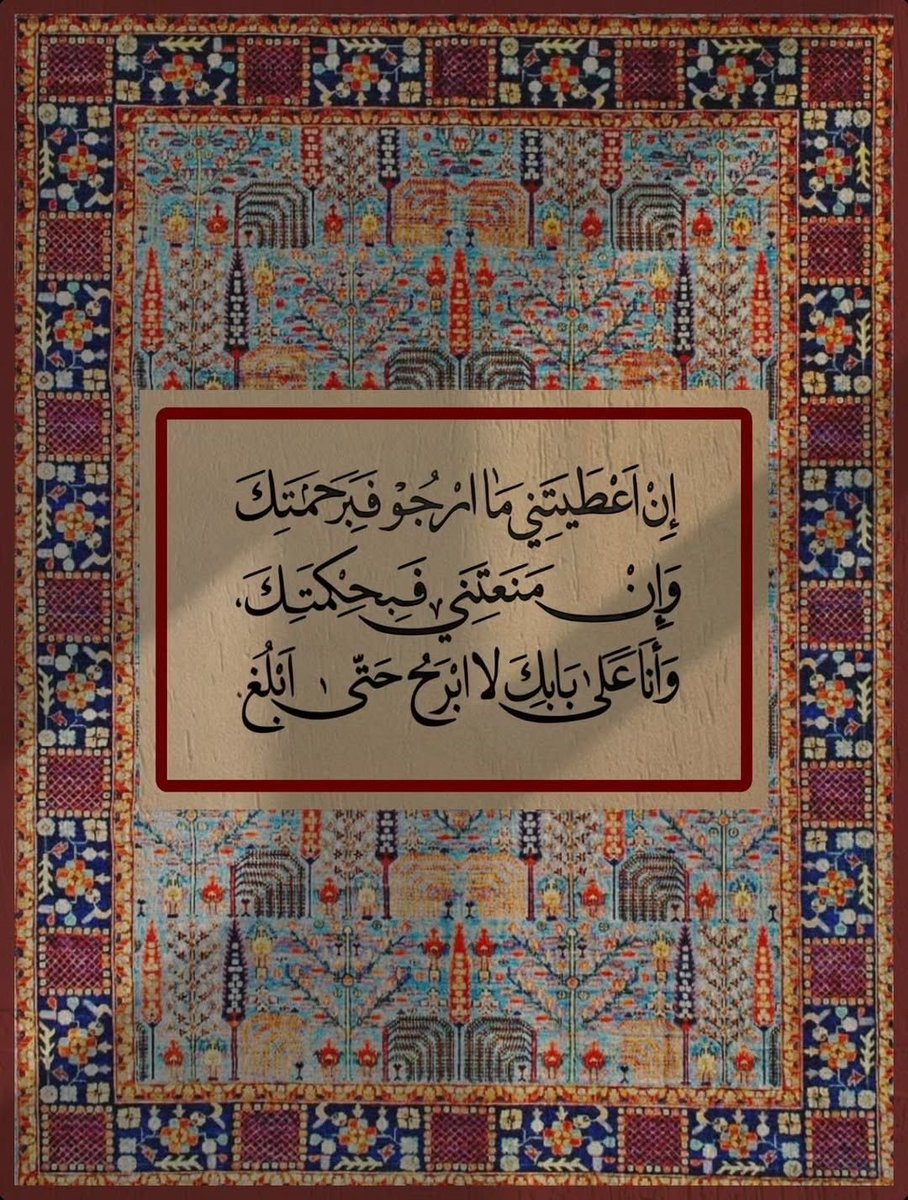 إِنْ اَعْطَيتَنِي مَا ارْجُوْ فَبِرَحمَتِكَ
وَإِنْ مَنَعتَنِي فَبِحِكمَتِكَ،
وَأَنَا عَلىٰ بَابِكَ لا ابْرَحُ حَتّى اَبْلُغَ.